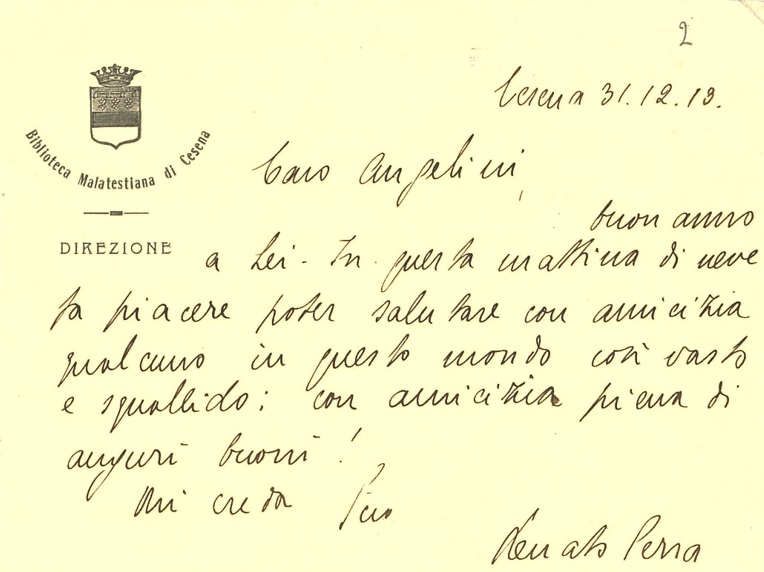 2
Cesena 31.12.13.
Biblioteca Malatestiana di Cesena
DIREZIONE
Caro Angelini,
buon anno
a Lei. In questa mattina di neve
fa piacere poter salutare con amicizia
qualcuno in questo mondo così vasto
e squallido; con amicizia piena di
auguri buoni!
Mi creda Suo
Renato Serra